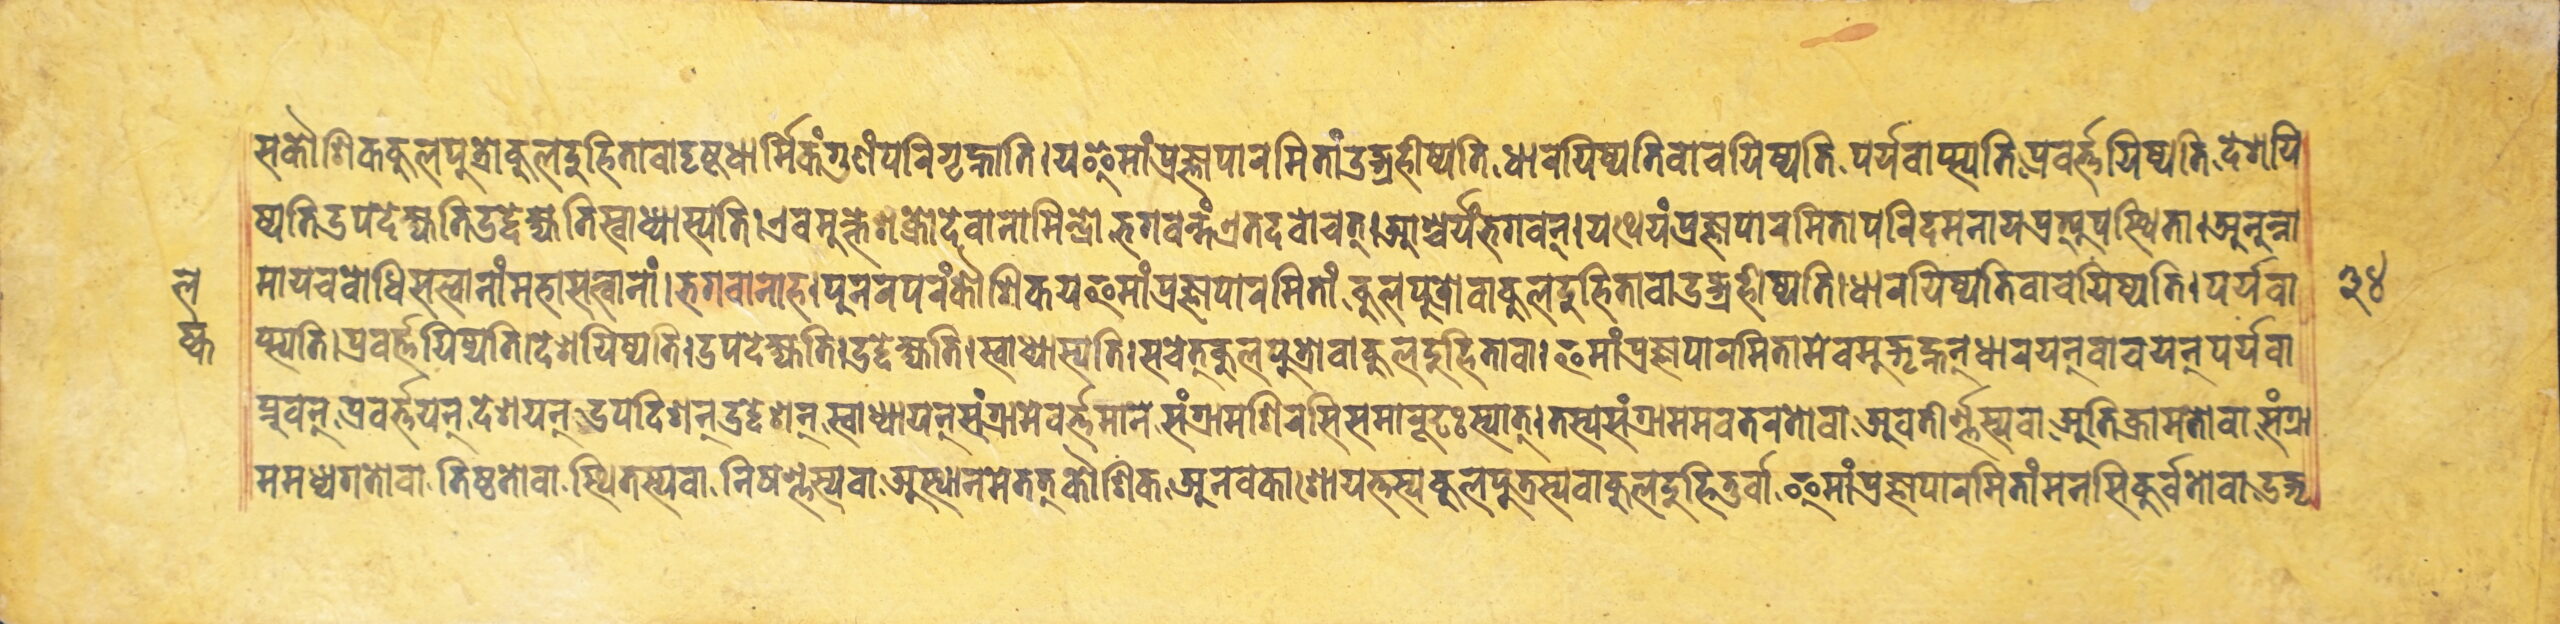 सकौशिककुलपुत्रोकुलदुहितावादृष्टधार्मिकंगुणंपरिगृह्णाति।यइमांप्रज्ञापारमितांउद्ग्रहीष्यति धारयिष्यतिवाचयिष्यति पर्यवाप्स्यति प्रवर्त्तयिष्यति देशयि
ष्यतिउपदेक्ष्यतिउद्देक्ष्यतिस्वाध्यास्यति।एवमुक्तेशक्रोदेवानामिन्द्रो भगवन्तंएतदवोचत्।आश्चर्यंभगवन्।यथेयंप्रज्ञापारमितापरिदमनायप्रत्युपस्थिता।अनुन्ना
मायचबोधिसत्त्वानांमहासत्त्वानां।भगवानाह।पुनरपरंकौशिकयइमांप्रज्ञापारमितां कुलपुत्रोवाकुलदुहितावाउद्ग्रहीष्यति।धारयिष्यतिवाचयिष्यति।पर्यवा
प्स्यति।प्रवर्त्तयिष्यति।देशयिष्यति।उपदेक्ष्यति।उद्देक्ष्यति।स्वाध्यास्यति।सचेत्कुलपुत्रोवाकुलदुहितावा।इमांप्रज्ञापारमितामेवमुद्गृह्णन्धारयन्वाचयन्पर्यवा
प्नुवन् प्रवर्त्तयन् देशयन् उपदिशन्उद्देशन् स्वाध्यायन्संग्रामेवर्त्तमाने संग्रामशिरसिसमारूढःस्यात्।तस्यसंग्राममवतरतोवा अवतीर्ण्णस्यवा अतिक्रामतोवा संग्रा
ममध्यगतोवा तिष्ठतोवा स्थितस्यवा निषण्णस्यवा अस्थानमेतत्कौशिक अनवकाशोयत्तस्यकुलपुत्रस्यवाकुलदुहितुर्वा इमांप्रज्ञापारमितांमनसिकुर्वतोवा उद्गृ
३४